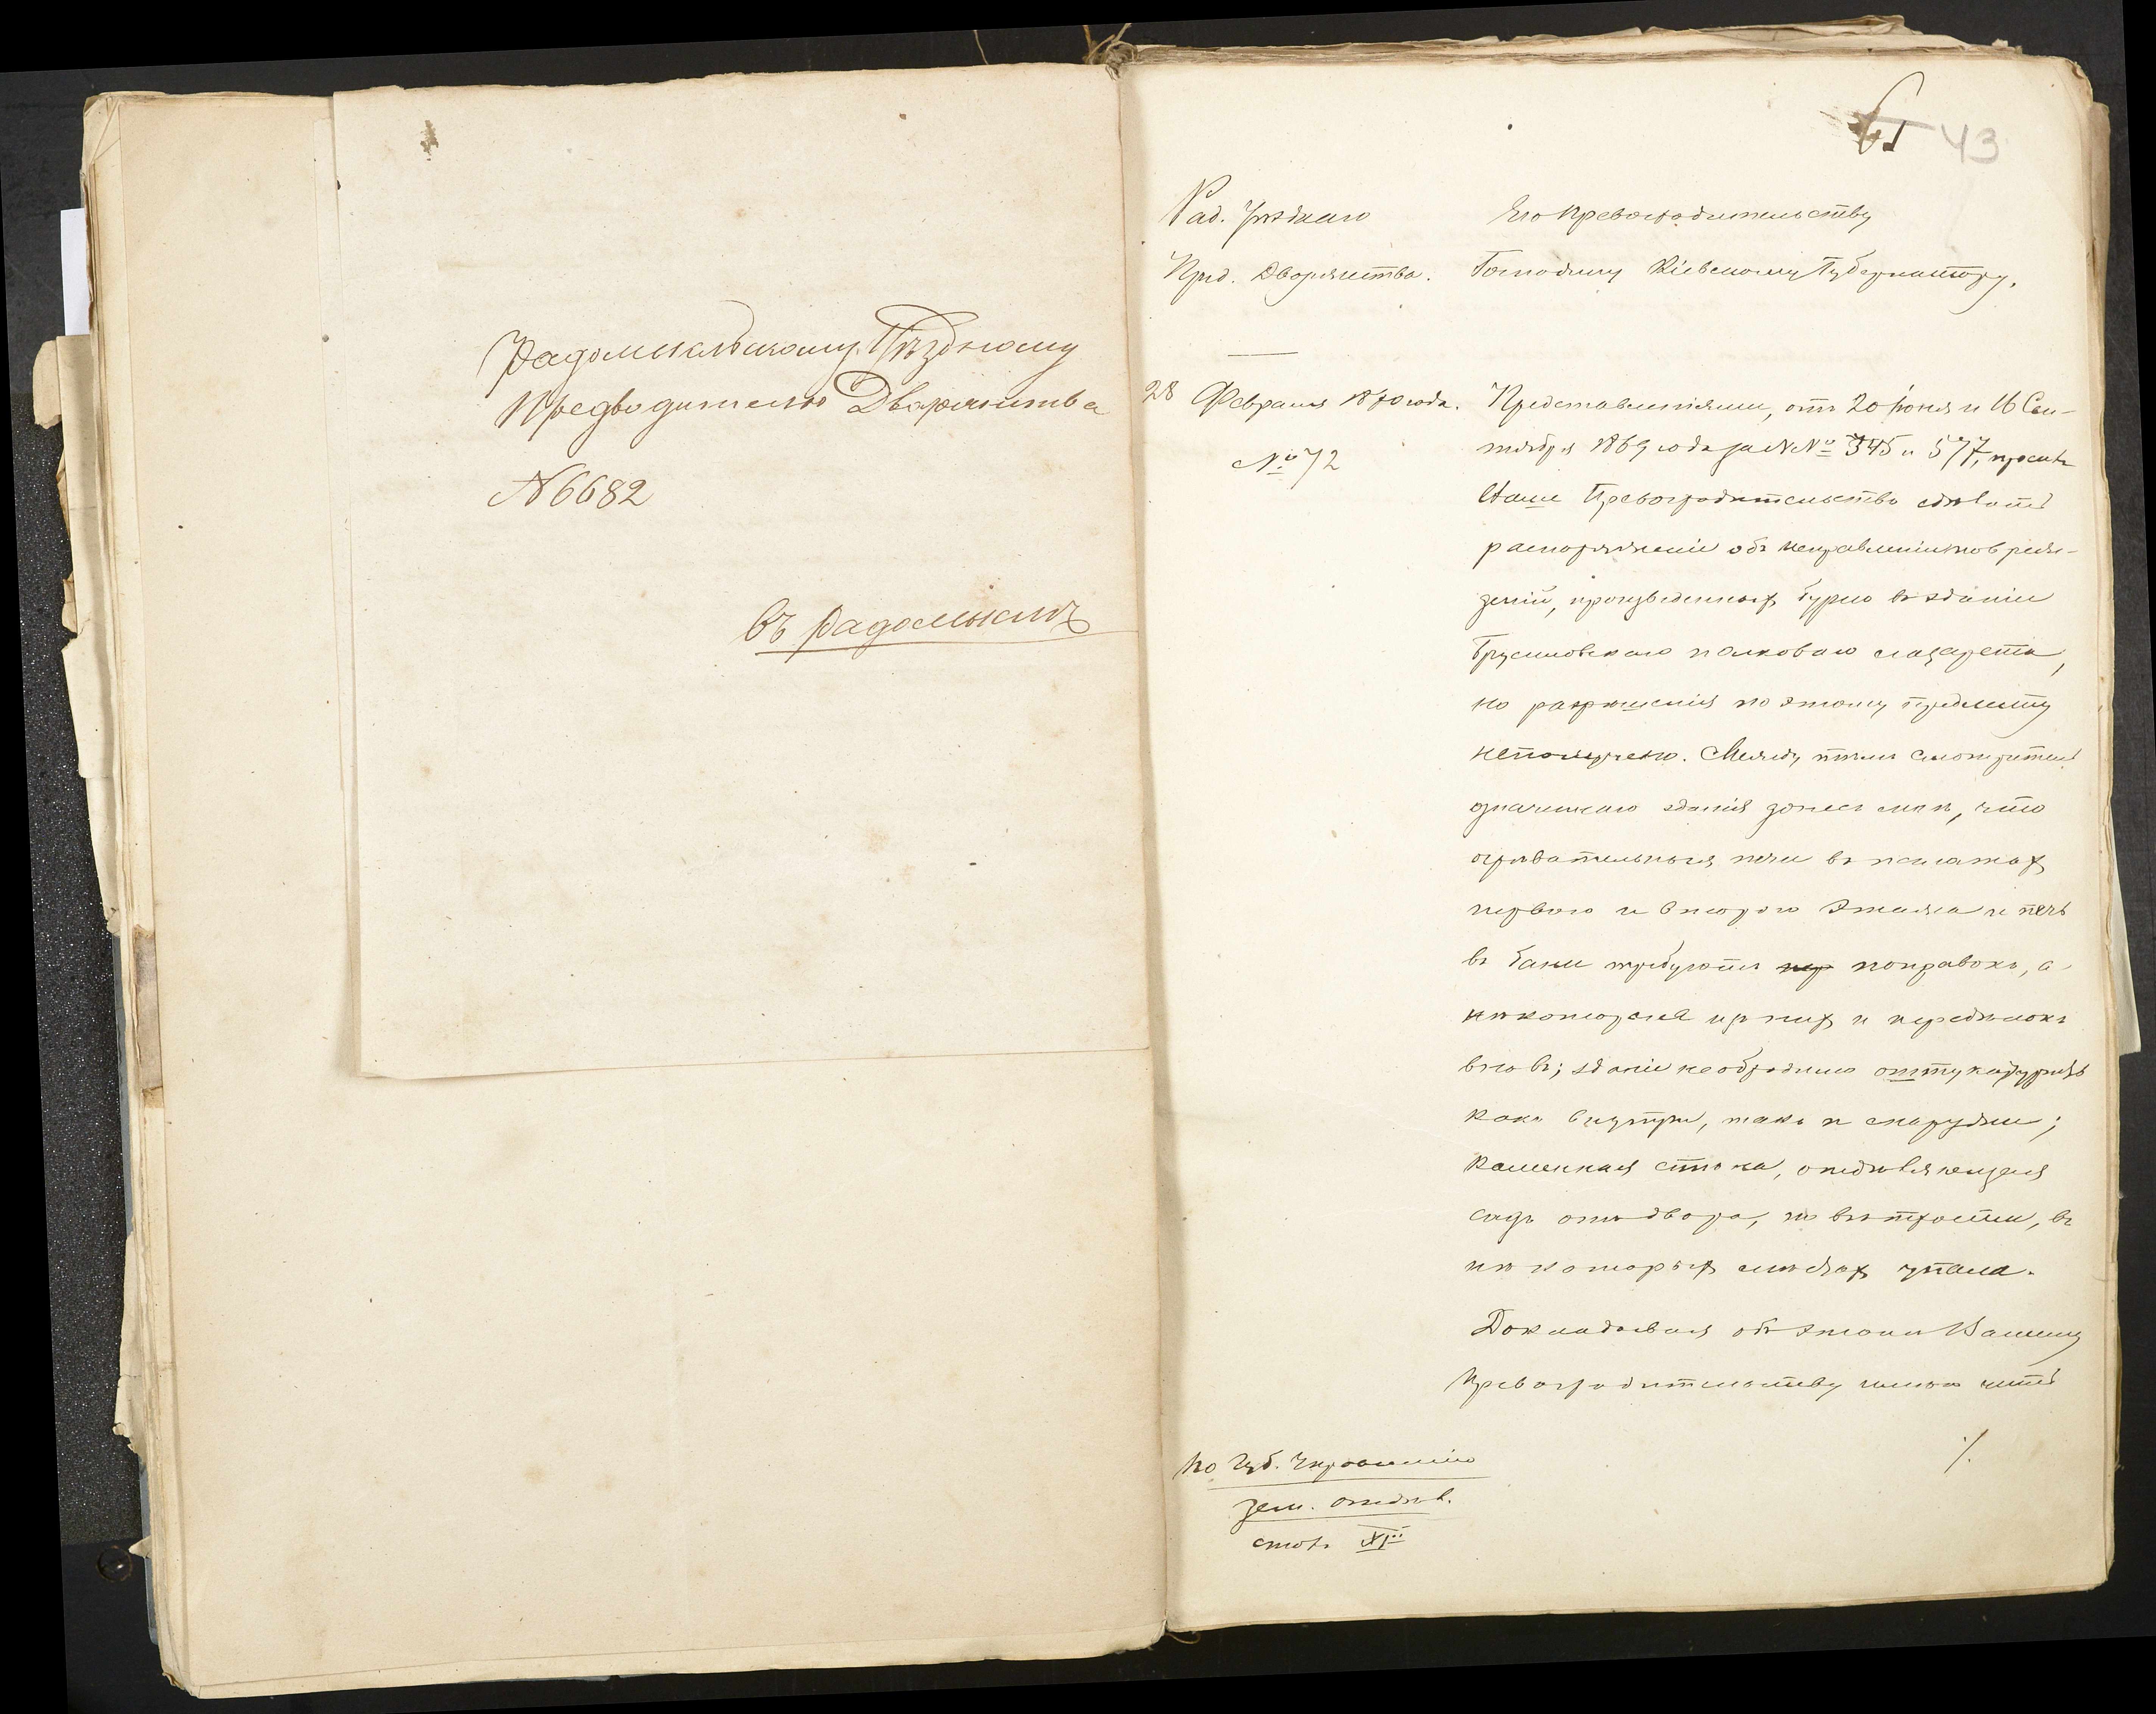 Радомысльскому Уѣздному
Предводителю Дворянства
№ 6682
въ Радомыслѣ
43
Рад. Уѣзднаго
Пред. Дворянства.
28 Февраля 1870 года.
№ 72
Его Превосходительству
Господину Кіевскому Губернатору.
Представленіями, отъ 20 Іюня и 16 Сен-
тября 1869 года за №№ 345 и 577, просилъ
Ваше Превосходительство сдѣлать
распоряженіе объ исправленіи повреж-
деній, произведенныхъ бурею въ зданіи
Брусиловскаго полковаго лазарета,
но разрѣшенія по этому предмету
неполучено. Между тѣмъ смотритель
означеннаго зданія донесъ мнѣ, что
огрѣвательныя печи въ палатахъ
перваго и втораго этажа и печь
въ банѣ требуютъ поправокъ, а
нѣкоторыя изъ нихъ и передѣлокъ
вновь; зданіе необходимо оштукатурить
какъ внутри, такъ и снаружи;
каменная стѣна, отдѣляющая
садъ отъ двора, по ветхости, въ
нѣкоторыхъ мѣстахъ упала.
Докладывая объ этомъ Вашему
Превосходительству имѣю честь
./.
По Губ. Управленію
зем. отдѣл.
столъ